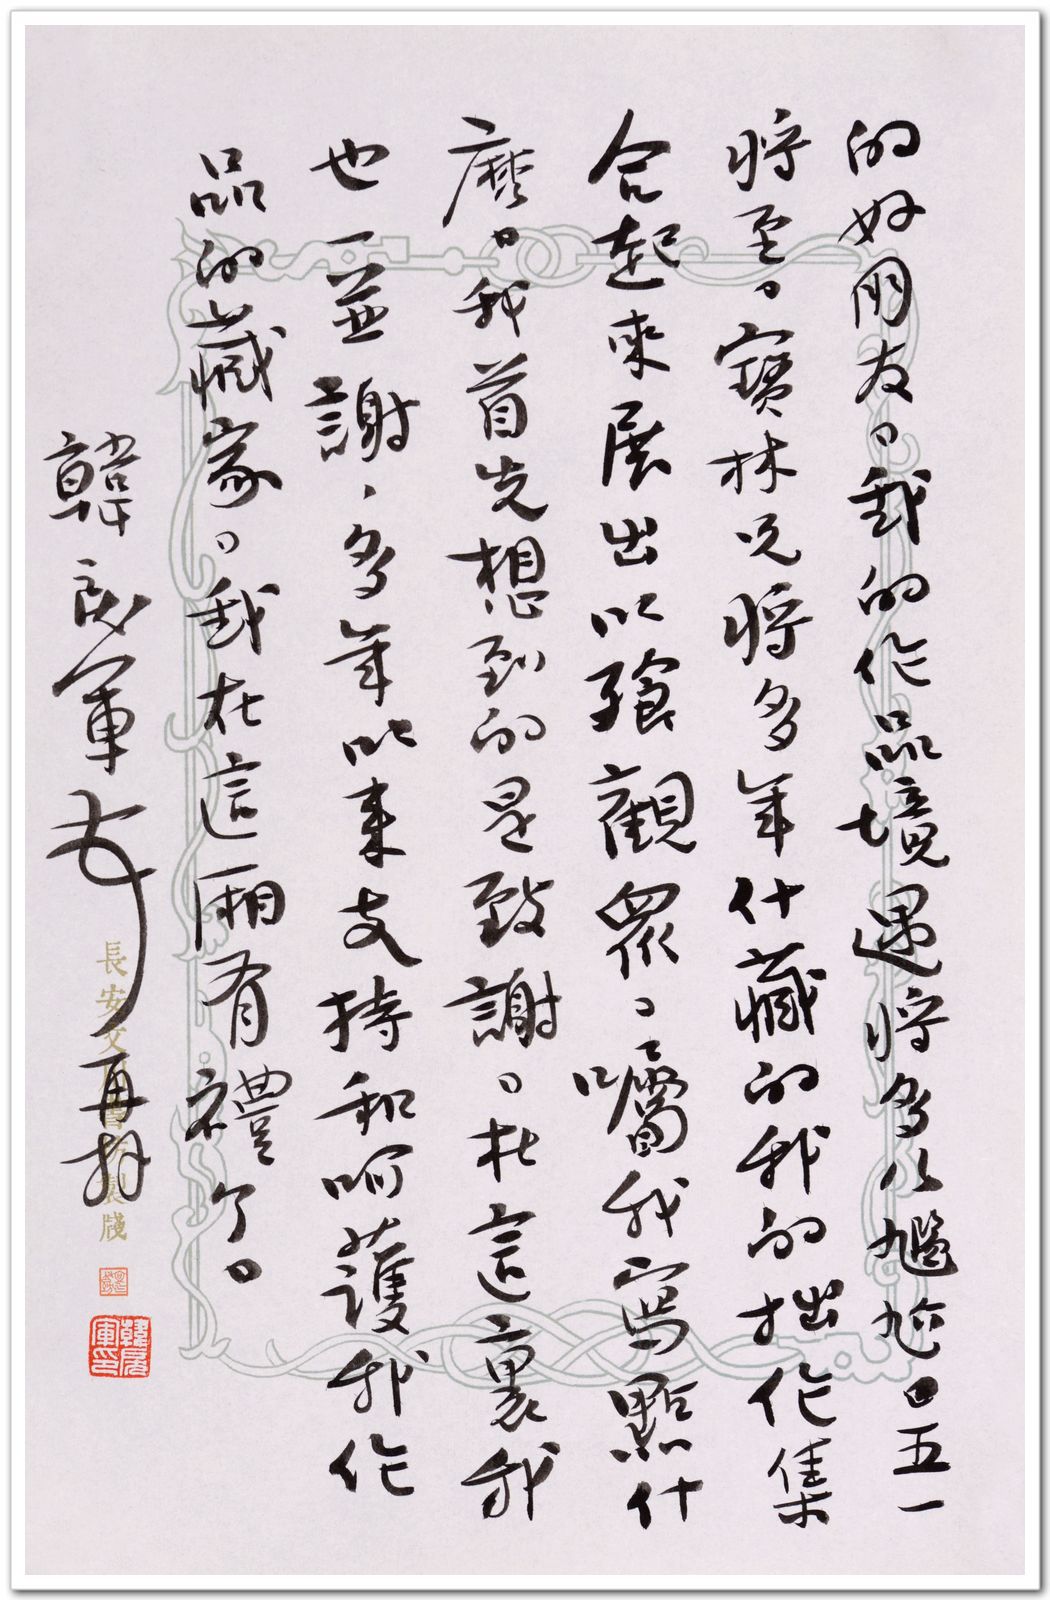 的好朋友。我的作品境遇將多么尷尬。五一
將至。寶林兄將多年什藏的我的拙作集
合起來展出以饗觀眾。囑我寫點什
麼。我首先想到的是致謝。在這裏我
也一並謝謝多年以來支持和呵護我作
品的藏家。我在這廂有禮了。
韓
軍
再拜
長安
牋